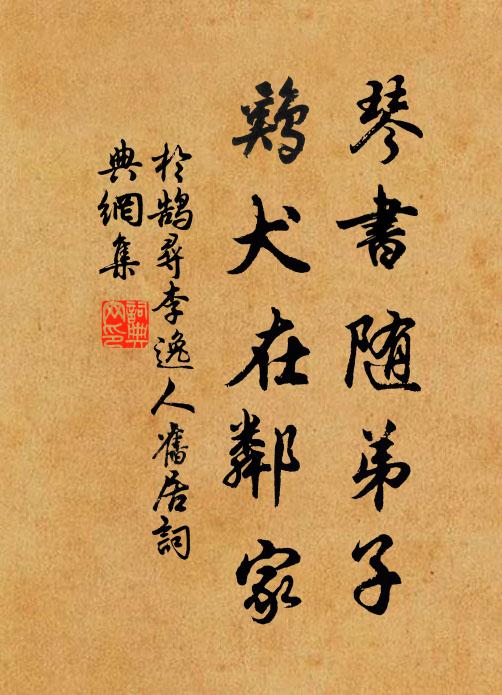 琴書随弟子
鷄犬在鄰家
於鵠尋李逸人舊居詞
典網集
詞典
网印